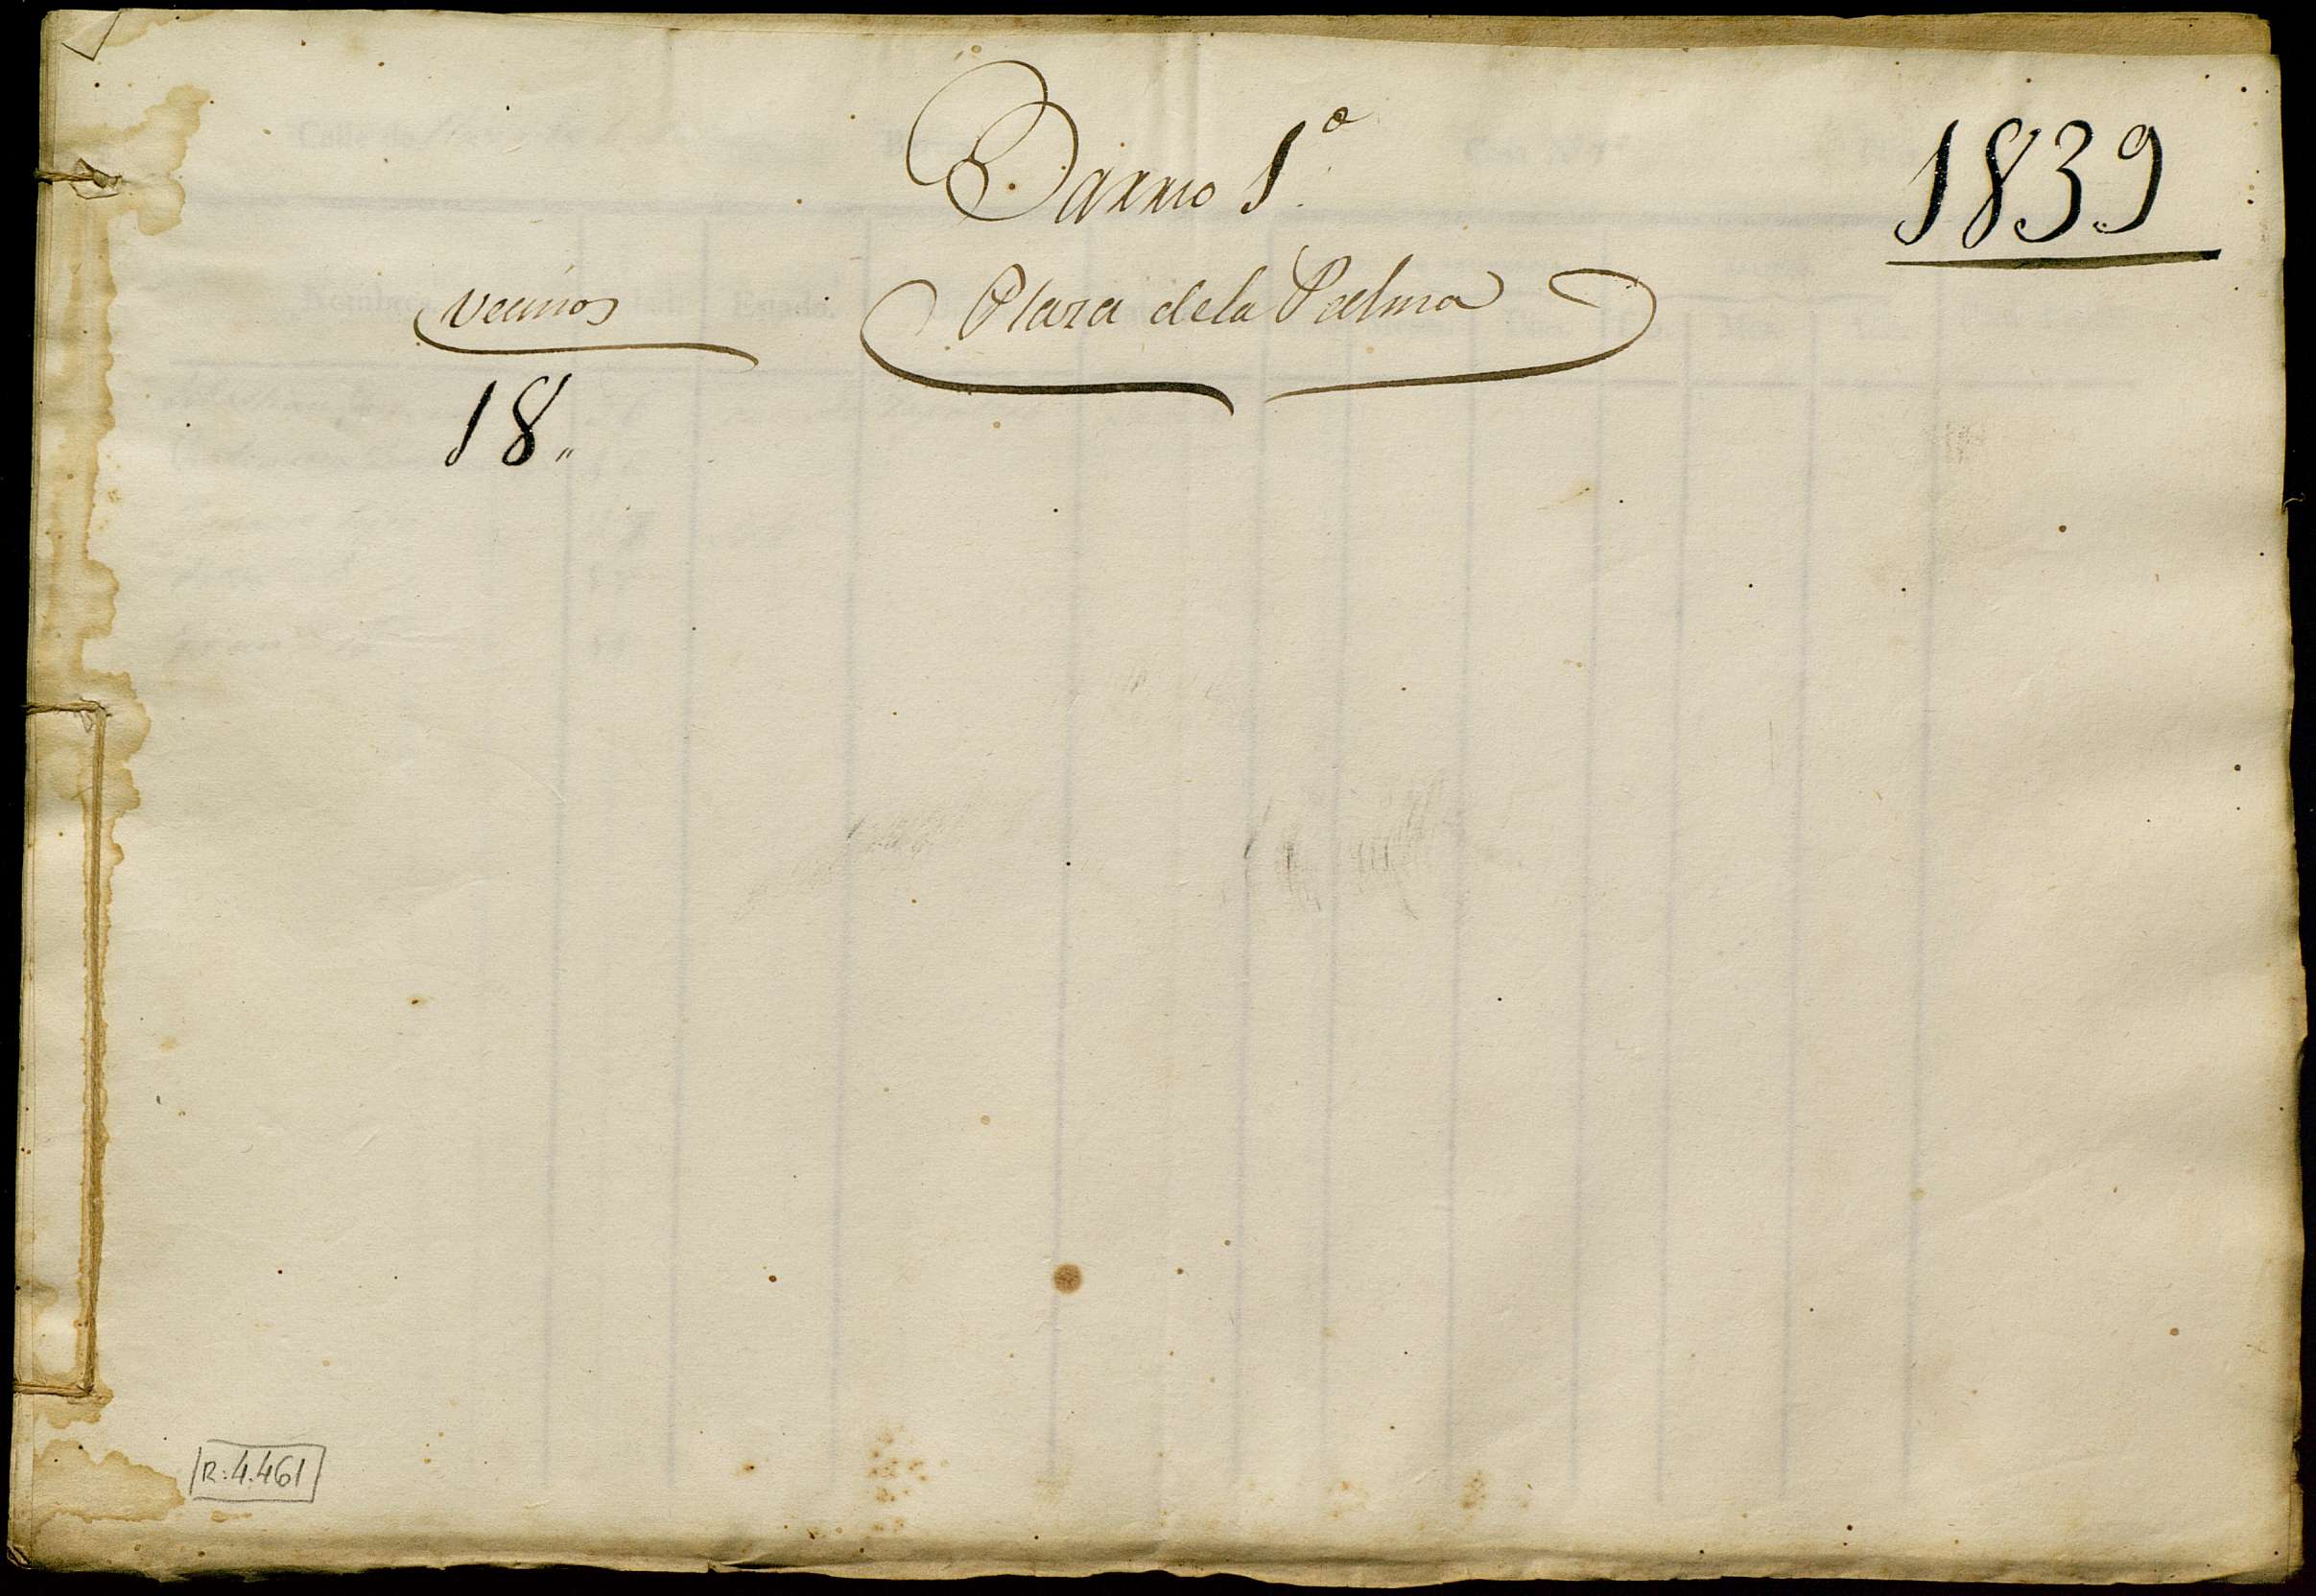 Barrio 1º
1839
Vecinos
Plaza de la Palma
18„
R: 4.461